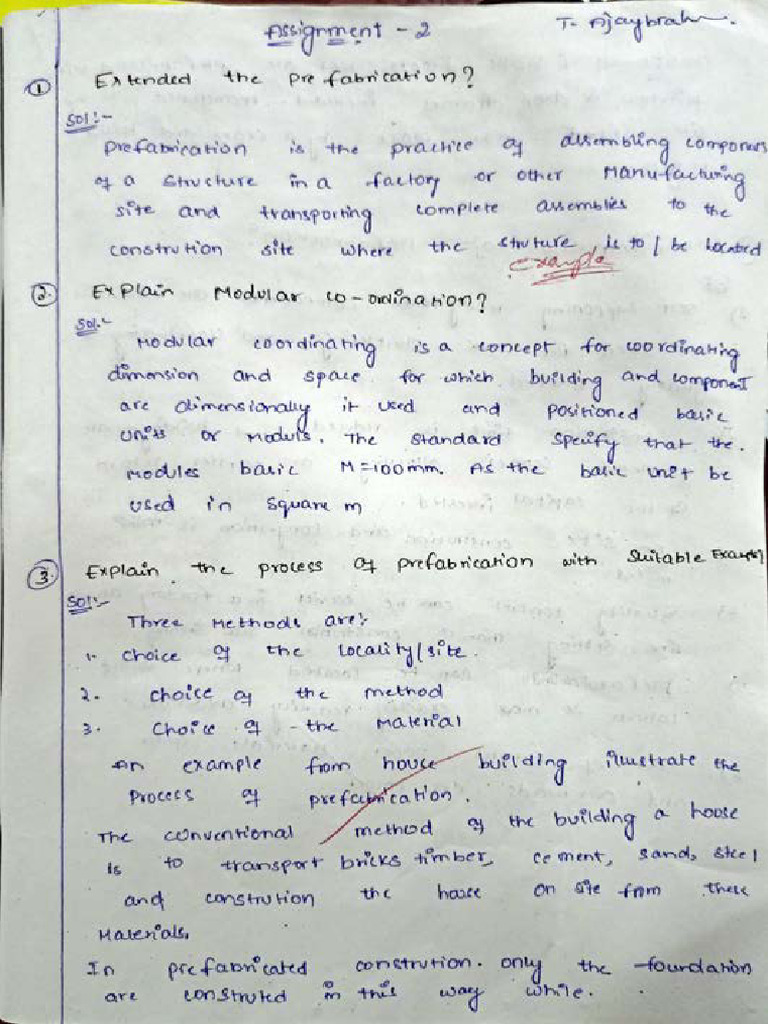 Assignment - 2
T. Ajaybrah
① Extended the prefabrication?
Sol:-
Prefabrication is the practice of assembling components
of a structure in a factory or other Manufacturing
site and transporting complete assemblies to the
constrution site where the struture is to / be located
example
2. Explain Modular co-ordination?
Sol:-
Modular coordinating is a concept for coordinating
dimension and space for which building and component
are dimensionally it used and positioned basic
units or Moduls. The standard specify that the
modules basic M=100mm. As the basic unit be
used in square m
3. Explain the process of prefabrication with suitable Example
Sol:-
Three methods are:-
1. Choice of the locality/site.
2. Choice of the method
3. Choice of the Material
An example from house building illustrate the
process of prefabrication.
The conventional method of the building a house
is to transport bricks timber, cement, sand, steel
and constrution the house on site from these
Materials.
In prefabricated constrution. only the foundation
are construted in this way while.